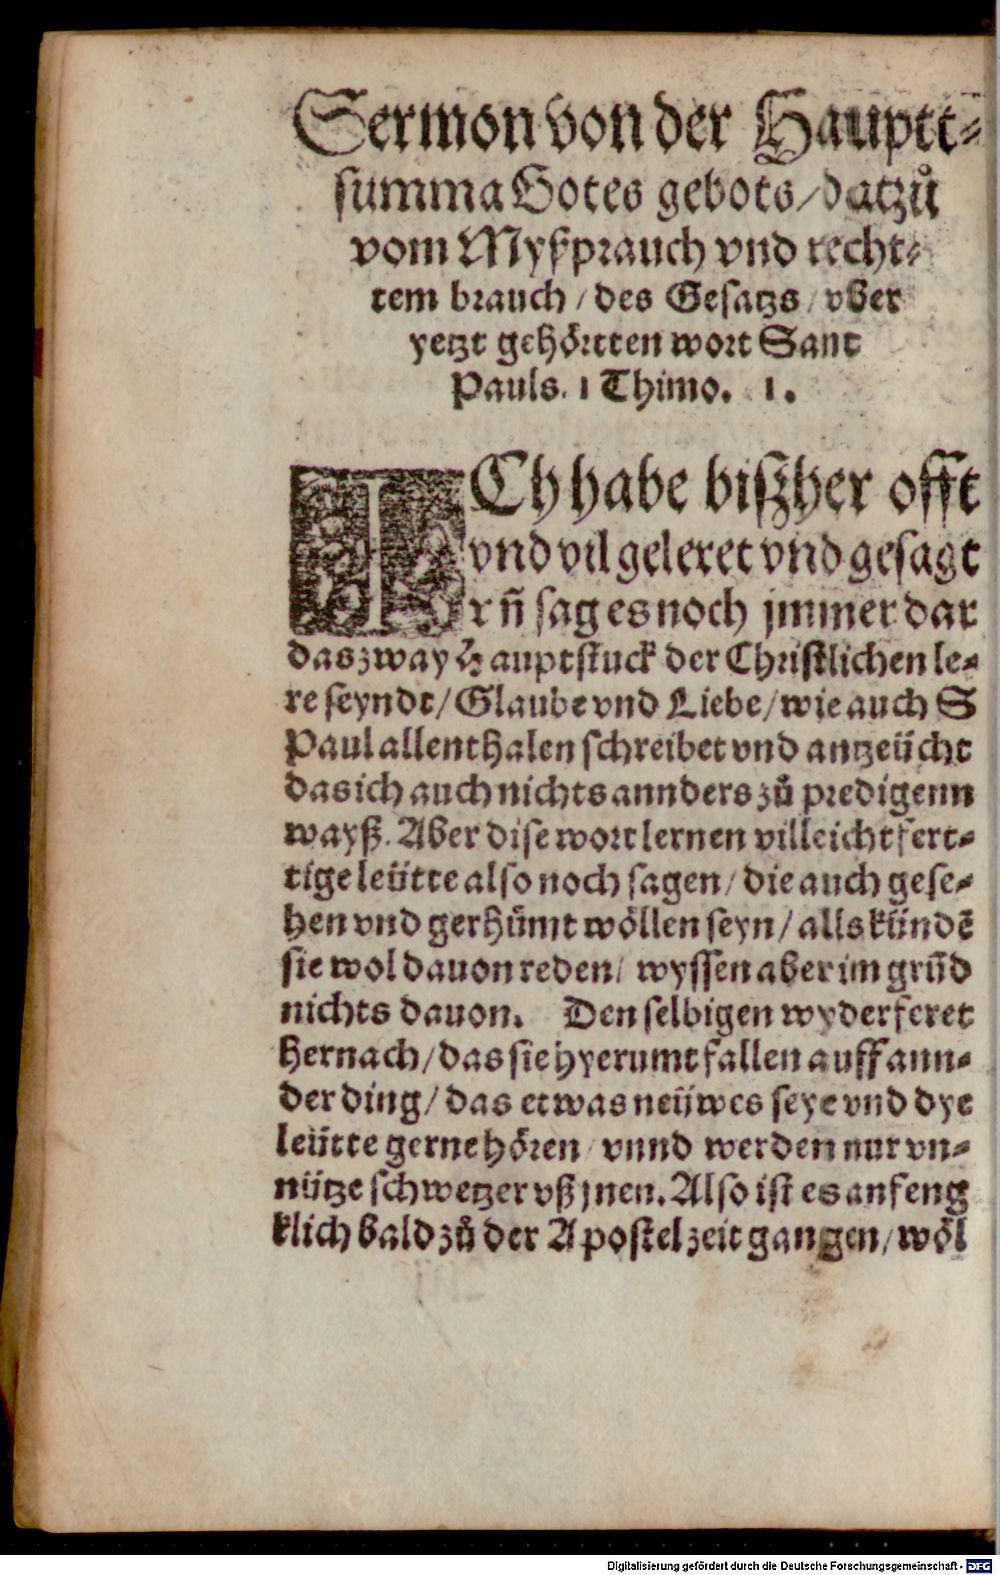 Sermon von der Hauptt⸗
summa Gotes gebots/datzů
vom Myßprauch vnd recht⸗
tem brauch/des Gesatzs/vber
yetzt gehörtten wort Sant
Pauls. 1 Thimo. 1.
ICh habe biszher offt
vnd vil geleret vnd gesagt
r uñ sag es noch jmmer dar
das zway Hauptstuck der Christlichen le⸗
re seyndt/Glaube vnd Liebe/wie auch S
Paul allenthalen schreibet vnd antzeücht
das ich auch nichts annders zů predigenn
wayß. Aber dise wort lernen villeicht fert⸗
tige leütte also noch sagen/die auch gese⸗
hen vnd gerhümt wöllen seyn/alls kündē
sie wol dauon reden/wyssen aber im grūd
nichts dauon. Den selbigen wyderferet
hernach/das sie hyerumt fallen auff ann⸗
der ding/das etwas neüwes seye vnd dye
leütte gerne hören/vnnd werden nur vn⸗
nütze schwetzer vß jnen. Also ist es anfeng
klich bald zů der Apostel zeit gangen/wöl
Digitalisierung gefördert durch die Deutsche Forschungsgemeinschaft - DFG